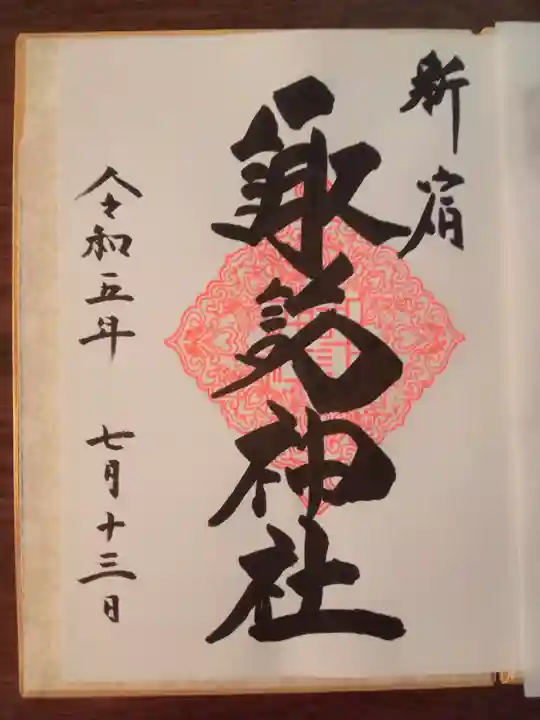 新宿
諏訪神社
令和五年 七月十三日